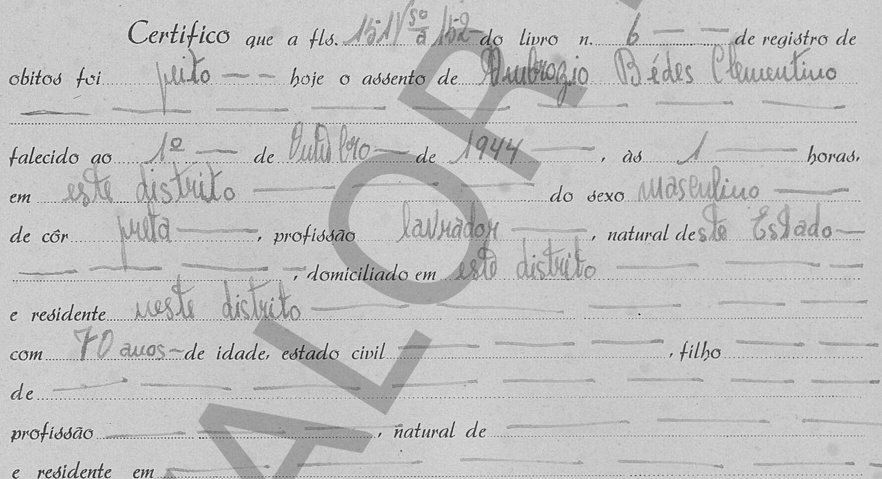 Certifico que a fls. 151/vº a 152 do livro n. 6 de registro de
obitos foi feito hoje o assento de Ambrozio Bédes Clementino
falecido ao 1º de Outubro de 1944, às 1 horas,
em este distrito do sexo masculino
de côr preta, profissão lavrador, natural deste Estado
, domiciliado em este distrito
e residente neste distrito
com 70 anos de idade, estado civil , filho
de
profissão , natural de
e residente em
VALOR